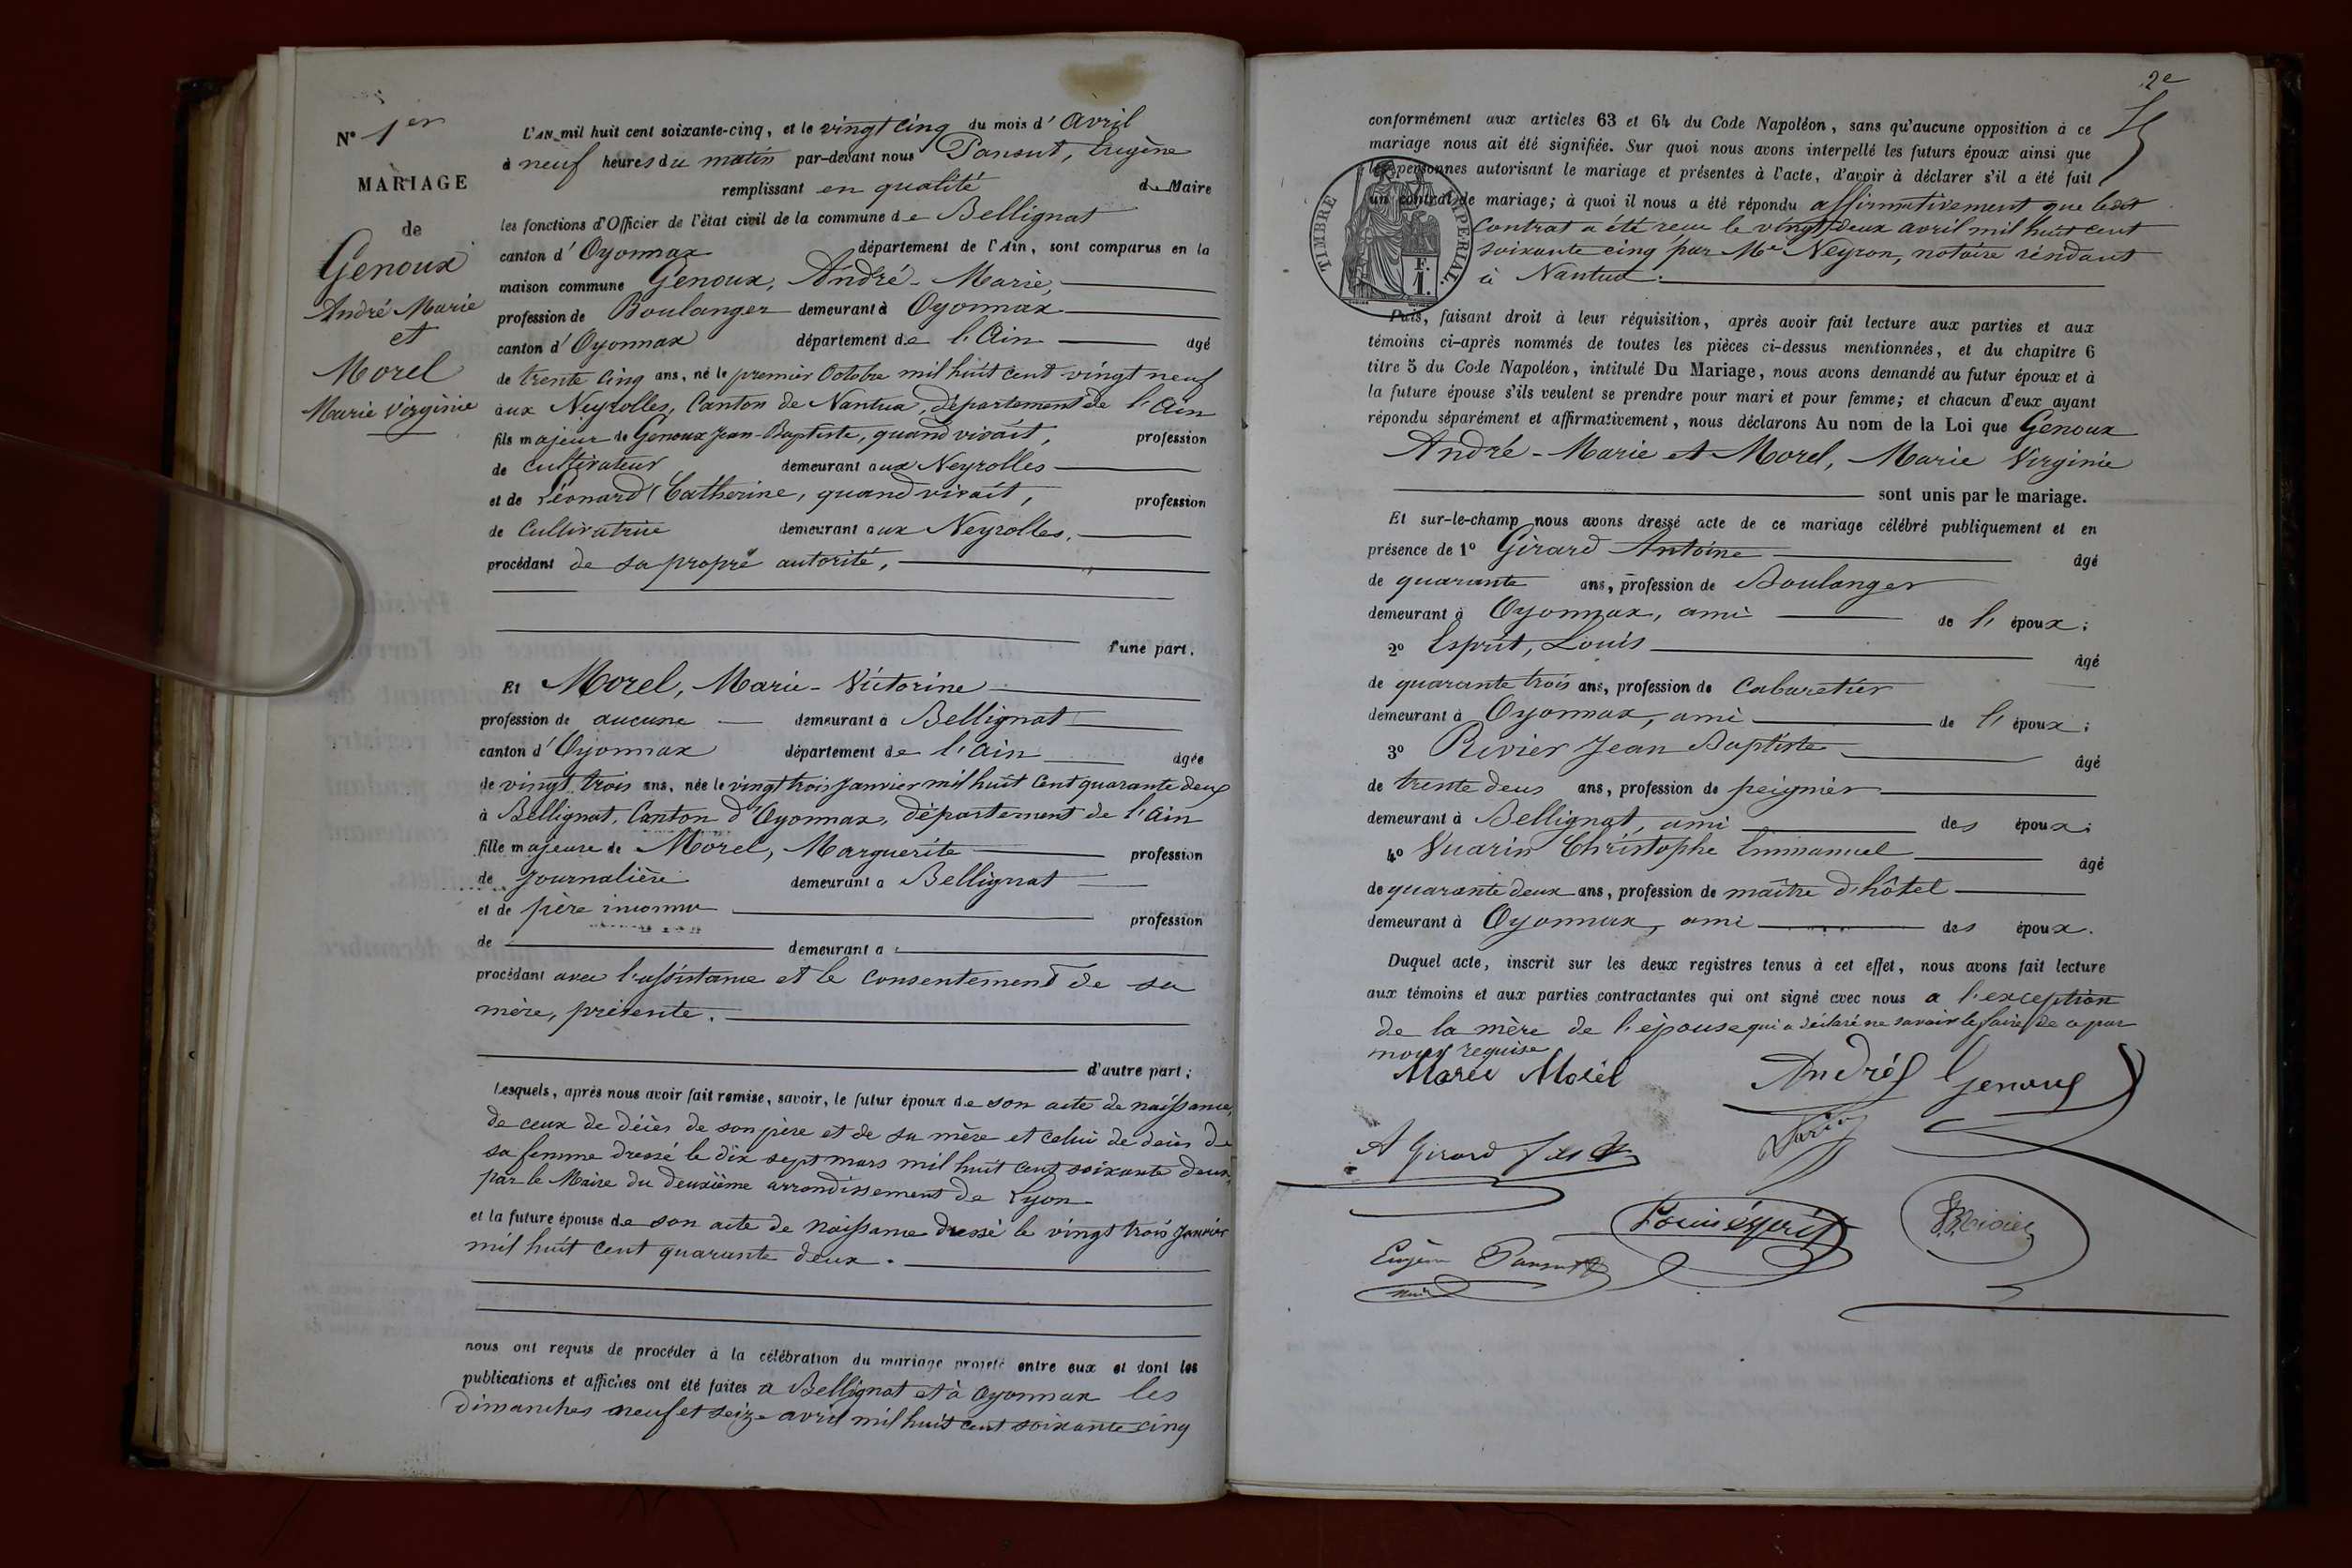 N° 1er
MARIAGE
de
Genoux
André Marie
et
Morel
Marie Virginie
L'AN mil huit cent soixante-cinq, et le vingt cinq du mois d'Avril
à neuf heures du matin par-devant nous Pansut, Eugène
remplissant en qualité de Maire
les fonctions d'Officier de l'état civil de la commune de Bellignat
canton d'Oyonnax département de l'Ain, sont comparus en la
maison commune Genoux, André-Marie,
profession de Boulanger demeurant à Oyonnax
canton d'Oyonnax département de l'Ain agé
de trente cinq ans, né le premier Octobre mil huit cent vingt neuf
aux Neyrolles, Canton de Nantua, département de l'Ain
fils majeur de Genoux Jean-Baptiste, quand vivait, profession
de cultivateur demeurant aux Neyrolles
et de Léonard Catherine, quand vivait, profession
de Cultivatrice demeurant aux Neyrolles,
procédant de sa propre autorité,
d'une part.
Et Morel, Marie-Victorine
profession de aucune demeurant à Bellignat
canton d'Oyonnax département de l'Ain agée
de vingt trois ans, née le vingt trois Janvier mil huit Cent quarante deux
à Bellignat, Canton d'Oyonnax, département de l'Ain
fille majeure de Morel, Marguerite profession
de Journalière demeurant a Bellignat
et de père inconnu profession
de demeurant a
procédant avec l'assistance et le consentement de sa
mère, présente.
d'autre part;
Lesquels, après nous avoir fait remise, savoir, le futur époux de son acte de naissance,
de ceux de décès de son père et de sa mère et celui de décès de
sa femme dressé le dix sept mars mil huit cent soixante deux,
par le Maire du deuxième arrondissement de Lyon
et la future épouse de son acte de naissance dressé le vingt trois Janvier
mil huit cent quarante deux.
nous ont requis de procéder à la célébration du mariage projeté entre eux et dont les
publications et affiches ont été faites a Bellignat et à Oyonnax les
dimanches neuf et seize avril mil huit cent soixante cinq
2e
conformément aux articles 63 et 64 du Code Napoléon, sans qu'aucune opposition à ce
mariage nous ait été signifiée. Sur quoi nous avons interpellé les futurs époux ainsi que
les personnes autorisant le mariage et présentes à l'acte, d'avoir à déclarer s'il a été fait
un contrat de mariage; à quoi il nous a été répondu affirmativement que ledit
Contrat a été reçu le vingt deux avril mil huit cent
soixante cinq par Me Neyron, notaire résidant
à Nantua.
TIMBRE IMPERIAL.
F.
1.
Puis, faisant droit à leur réquisition, après avoir fait lecture aux parties et aux
témoins ci-après nommés de toutes les pièces ci-dessus mentionnées, et du chapitre 6
titre 5 du Code Napoléon, intitulé Du Mariage, nous avons demandé au futur époux et à
la future épouse s'ils veulent se prendre pour mari et pour femme; et chacun d'eux ayant
répondu séparément et affirmativement, nous déclarons Au nom de la Loi que Genoux
André-Marie et Morel, Marie Virginie
sont unis par le mariage.
Et sur-le-champ nous avons dressé acte de ce mariage célébré publiquement et en
présence de 1° Girard Antoine âgé
de quarante ans, profession de Boulanger
demeurant à Oyonnax, ami de l'époux;
2° Esprit, Louis âgé
de quarante trois ans, profession de Cabaretier
demeurant à Oyonnax, ami de l'époux;
3° Rivier Jean Baptiste âgé
de trente deux ans, profession de peignier
demeurant à Bellignat, ami des époux;
4° Vuarin Christophe Emmanuel âgé
de quarante deux ans, profession de maître d'hôtel
demeurant à Oyonnax, ami des époux.
Duquel acte, inscrit sur les deux registres tenus à cet effet, nous avons fait lecture
aux témoins et aux parties contractantes qui ont signé avec nous a l'exception
de la mère de l'épouse qui a déclaré ne savoir le faire de ce par
nous requise
Marie Morel André Genoux
A Girard
Louis esprit Rivier
Eugène Pansut